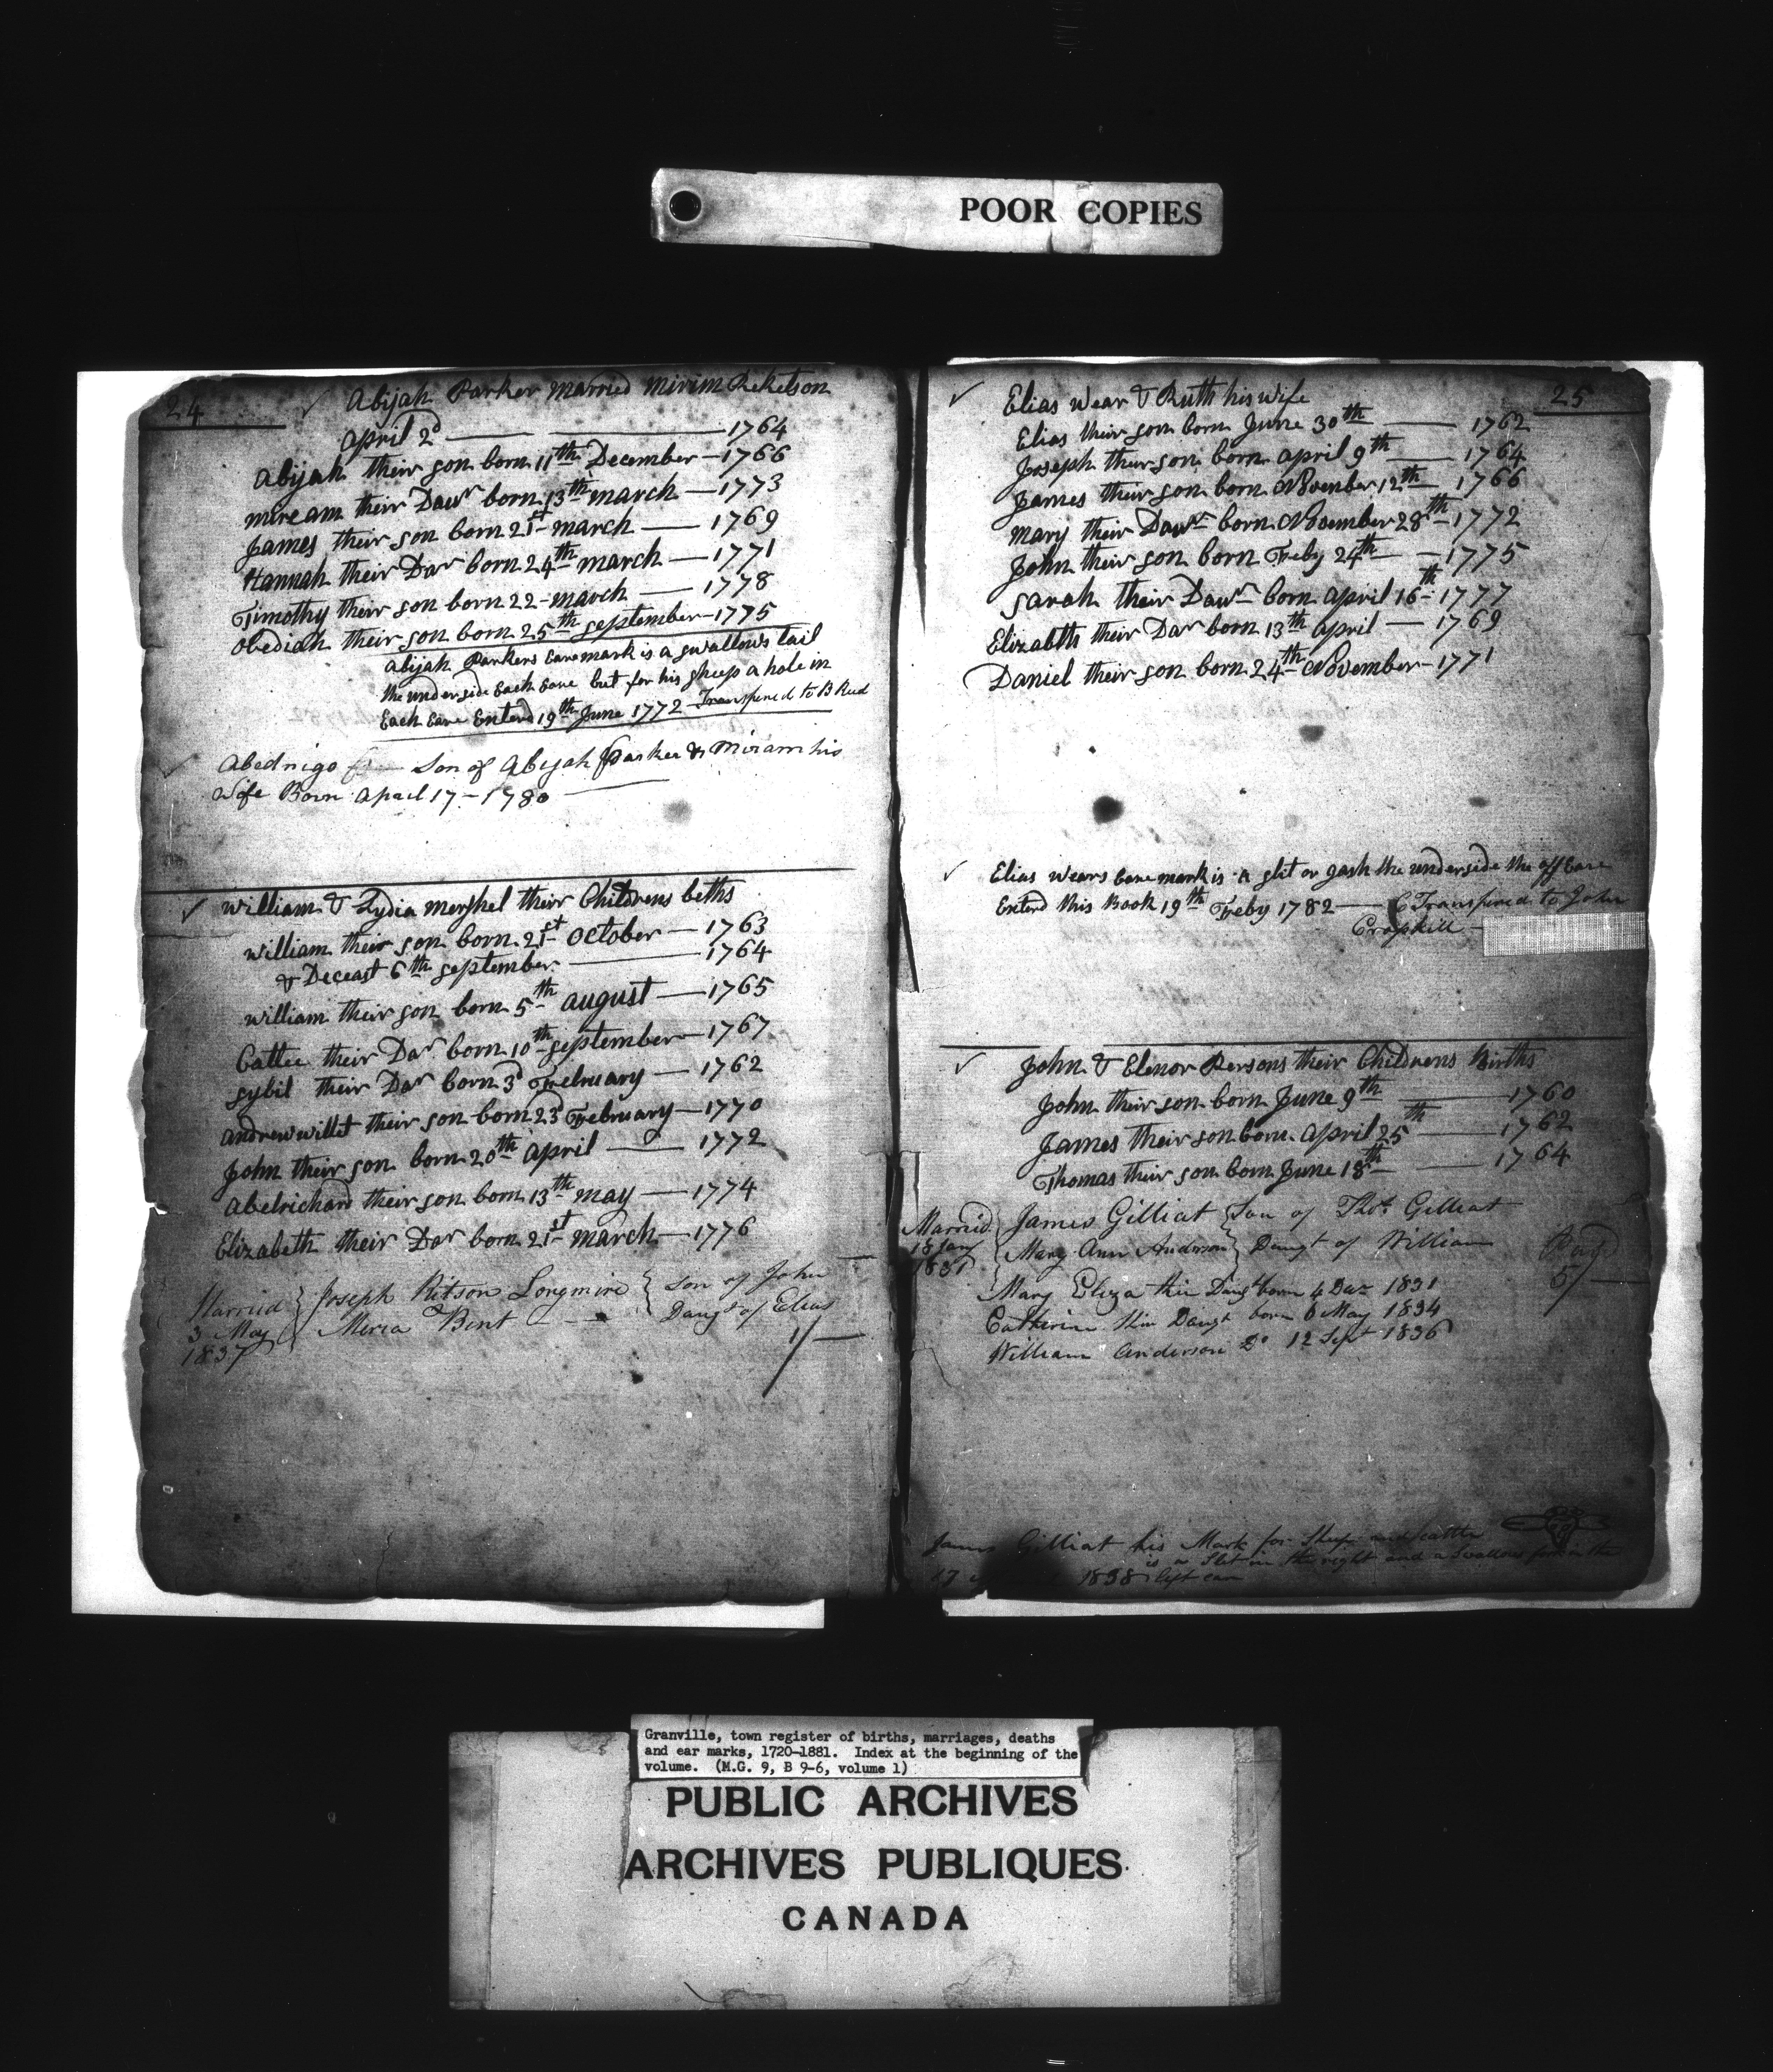 POOR COPIES
24
Abijah Parker married mirim Reketson
April 2d 1764
Abijah their son born 11th December 1766
mireams their Dawr born 13th march 1773
James their son born 21st march 1769
Hannah their Dar born 24th march 1771
Timothy their son born 22 march 1778
obediah their son born 25th september 1775
Abijah Parkers Earemark is a swallows tail
the underside Each Eare but for his sheep a hole in
Each Eare Enterd 19th June 1772 Transfered to B Rud
Abednigo Son of Abijah Parker & Miriam his
Wife Born April 17 - 1780
William & Lydia mershel their Childrens beths
william their son born 21st october 1763
& Deceast 6th september 1764
william their son born 5th august 1765
Cattee their Dar born 10th september 1767
sybil their Dar born 3d February 1762
andrewwillet their son born 23d February 1770
John their son born 20th april 1772
Abelrichard their son born 13th may 1774
Elizabeth their Dar born 21st march 1776
Married } Joseph Ritson Longmire { Son of John
3 May & Merca Bent Daugt of Elias
1837 1/-
25
Elias Wear & Ruth his wife
Elias their son born June 30th 1762
Joseph their son born april 9th 1764
James their son born November 12th 1766
mary their Dawr born November 28th 1772
John their son born Feby 24th 1775
sarah their Dawr born april 16th 1777
Elizabth their Dar born 13th april 1769
Daniel their son born 24th November 1771
Elias Wears Earemark is a slit or gash the underside the off Eare
Enterd this Book 19th Feby 1782 Transfered to John
Cropkill
John & Elenor Persons their Childrens Births
John their son born June 9th 1760
James their son born april 25th 1762
Thomas their son born June 18th 1764
Married { James Gilliat { Son of Thos. Gilliat
18 Jany { Mary Ann Anderson } Daugt of William
1831
Mary Eliza their Daugt born 4 Decr 1831
5/
Catherine their Daugt born 6 May 1834
William Anderson Do 12 Sept 1836
James Gilliat his Mark for Sheep and cattle
is a Slit in the right and a Swallow fork in the
17 1838 left ear
Granville, town register of births, marriages, deaths
and ear marks, 1720-1881. Index at the beginning of the
volume. (M.G. 9, B 9-6, volume 1)
PUBLIC ARCHIVES
ARCHIVES PUBLIQUES
CANADA